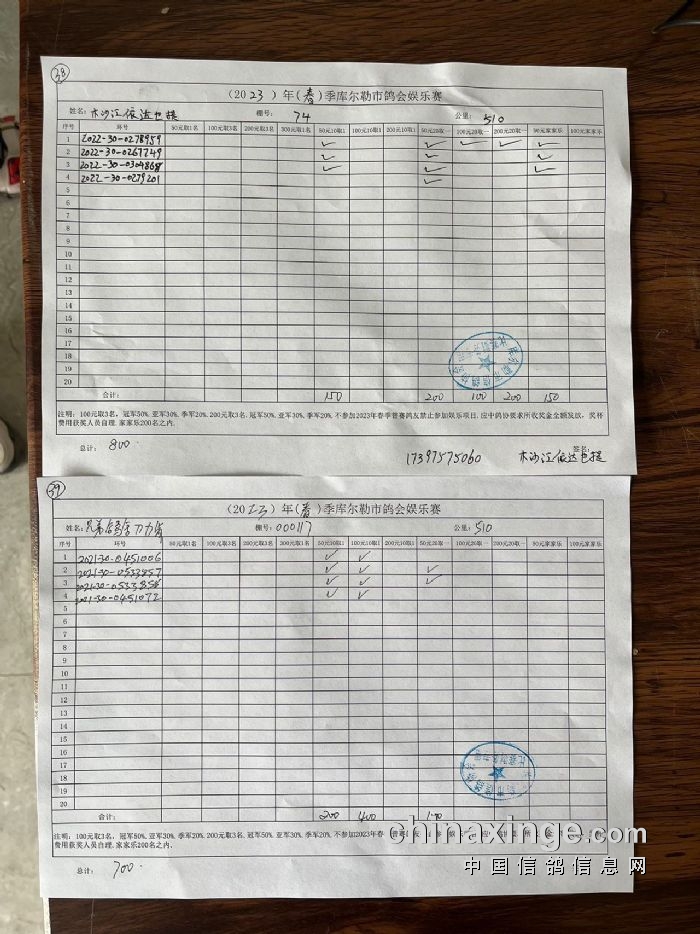 38
(2023)年(春)季库尔勒市鸽会娱乐赛
姓名: 木沙江依达也提 棚号: 74 公里: 510
序号 环号 50元取1名 100元取3名 200元取3名 300元取1名 50元10取1 100元10取1 200元10取1 50元20取一 100元20取一 200元20取一 50元家家乐 100元家家乐
1 2022-30-0278959 ✓ ✓ ✓ ✓ ✓
2 2022-30-0267749 ✓ ✓ ✓
3 2022-30-0304868 ✓ ✓ ✓
4 2022-30-0279201 ✓
5
6
7
8
9
10
11
12
13
14
15
16
17
18
19
20
合计: 150 200 100 200 150
注明: 100元取3名, 冠军50%,亚军30%,季军20%.200元取3名.冠军50%,亚军30%,季军20%,不参加2023年春季普赛鸽友禁止参加娱乐项目.应中鸽协要求所收奖金全额发放, 奖杯
费用获奖人员自理.家家乐200名之内.
总计: 800.
签名:
17397575060 木沙江依达也提
39
(2023)年(春)季库尔勒市鸽会娱乐赛
姓名: 兄弟鸽舍 棚号: 000117 公里: 510
序号 环号 50元取1名 100元取3名 200元取3名 300元取1名 50元10取1 100元10取1 200元10取1 50元20取一 100元20取一 200元20取一 50元家家乐 100元家家乐
1 2021-30-0451006 ✓ ✓
2 2021-30-0533857 ✓ ✓ ✓
3 2021-30-0533858 ✓ ✓ ✓
4 2021-30-0451072 ✓ ✓
5
6
7
8
9
10
11
12
13
14
15
16
17
18
19
20
合计: 200 400 100
注明: 100元取3名, 冠军50%,亚军30%,季军20%.200元取3名.冠军50%,亚军30%,季军20%,不参加2023年春
费用获奖人员自理.家家乐200名之内.
总计: 700.
chinaxinge.com
中国信鸽信息网